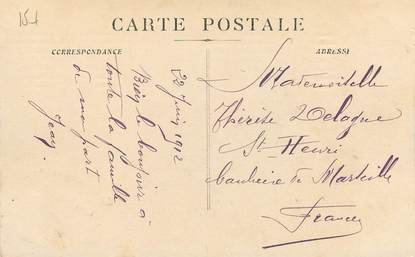 15-1
CARTE POSTALE
CORRESPONDANCE
ADRESSE
22 Juin 1912
Bien le bonjour à
toute la famille
de ma part
Jean
Mademoiselle
Thérèse Delague
St Henri
banlieue de Marseille
France